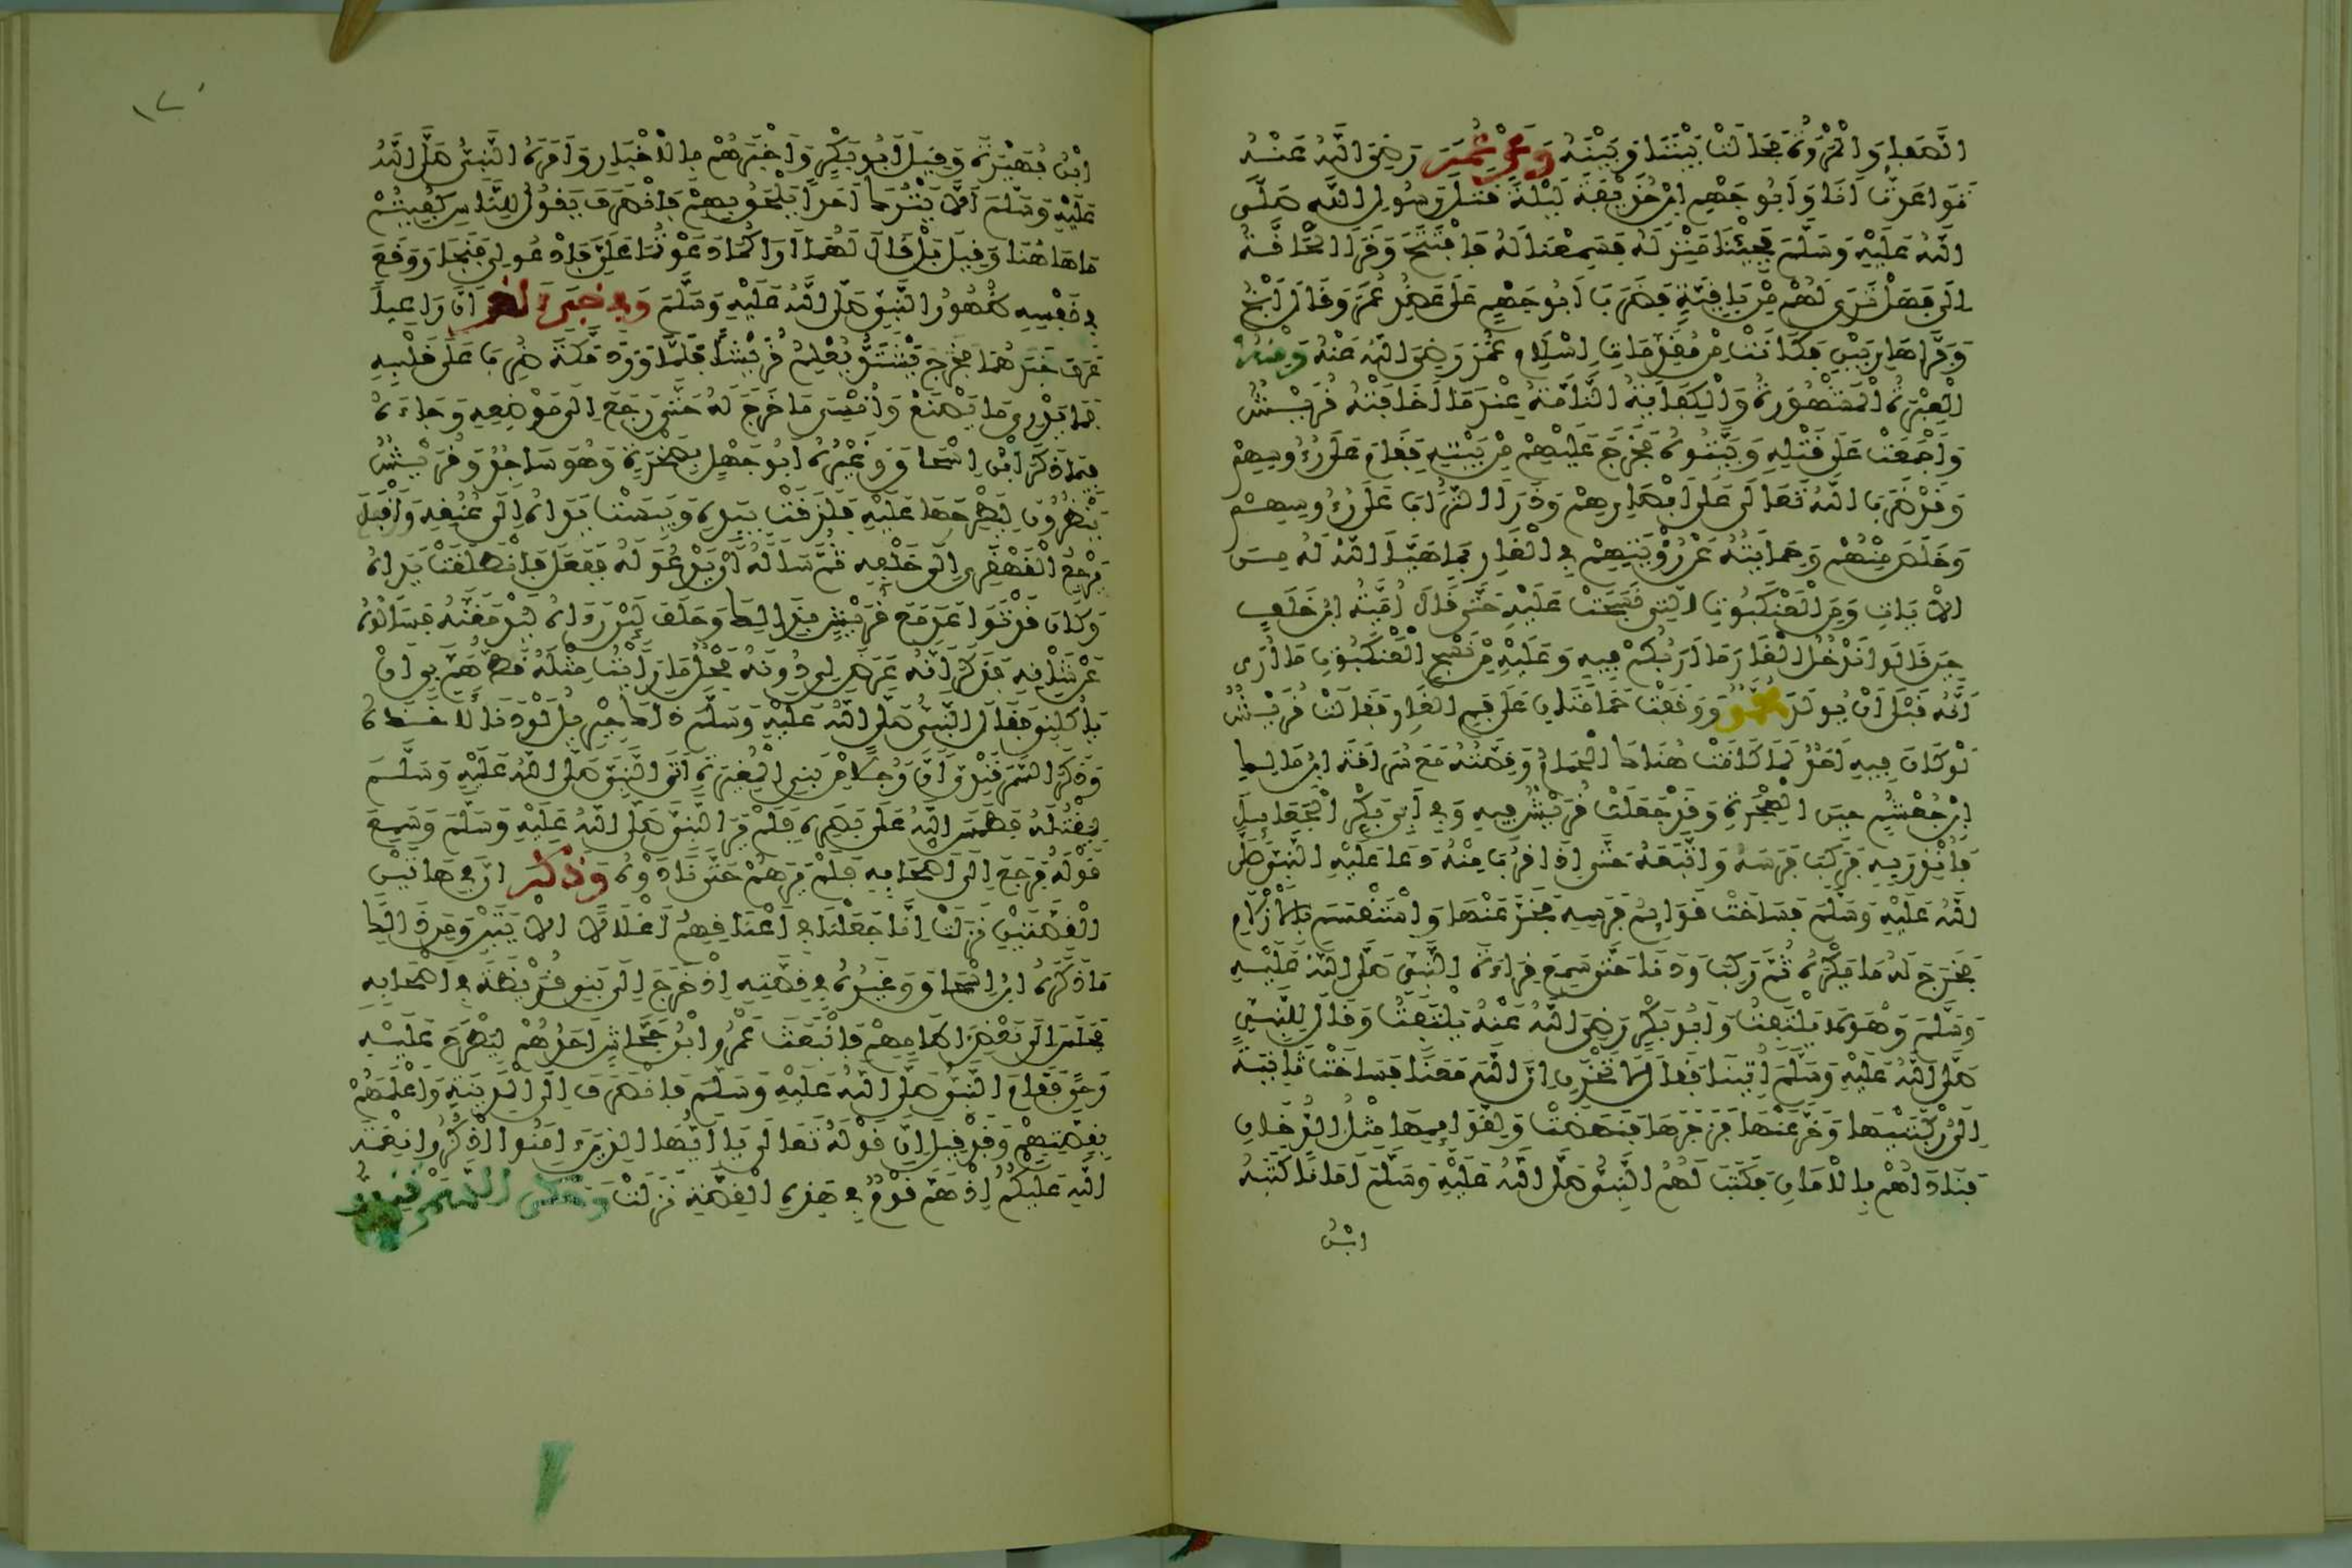 الصفا والمروة فحالت بيننا وبينه وعن عمر رضي الله عنه
تواعدت أنا وأبو جهم ابن حذيفة ليلة قتل رسول الله صلى
الله عليه وسلم فجئنا منزله فسمعنا له فافتتح وقرأ الحاقة
إلى فهل ترى لهم من باقية فضرب أبو جهم على عضد عمر وقال انج
وفرا هاربين فكانت من مقدمات إسلام عمر رضي الله عنه ومنه
العبرة المشهورة والكفاية التامة عندما أخافته قريش
وأجمعت على قتله وبيتوه فخرج عليهم من بيته فقام على رءوسهم
وقد ضرب الله تعالى على أبصارهم وذرا التراب على رءوسهم
وخلص منهم وحمايته عن رؤيتهم في الغار بما هيأ الله له من
الآيات ومن العنكبوت التي نسجت عليه حتى قال أمية ابن خلف
حين قالوا ندخل الغار ما أربكم فيه وعليه من نسج العنكبوت ما أرى
أنه قبل أن يولد محمد ووقفت حمامتان على فم الغار فقالت قريش
لو كان فيه أحد لما كانت هناك الحمام وقصته مع سراقة ابن مالك
ابن جعشم حين الهجرة وقد جعلت قريش فيه وفي أبي بكر الجعائل
فأنذر به فركب فرسه واتبعه حتى إذا قرب منه دعا عليه النبي صلى
الله عليه وسلم فساخت قوائم فرسه فخر عنها واستقسم بالأزلام
فخرج له ما يكره ثم ركب ودنا حتى سمع قراءة النبي صلى الله عليه
وسلم وهو لا يلتفت وأبو بكر رضي الله عنه يلتفت وقال للنبي
صلى الله عليه وسلم أتينا فقال لا تحزن إن الله معنا فساخت ثانية
إلى ركبتيها وخر عنها فزجرها فنهضت ولقوائمها مثل الدخان
فناداهم بالأمان فكتب لهم النبي صلى الله عليه وسلم أمانا كتبه
ابن
١٢٠
ابن فهيرة وقيل أبو بكر وأخبرهم بالأخبار وأمره النبي صلى الله
عليه وسلم ألا يترك أحدا يلحق بهم فانصرف يقول للناس كفيتم
ما هاهنا وقيل بل قال لهما أراكما دعوتما علي فادعوا لي فنجا ووقع
في نفسه ظهور النبي صلى الله عليه وسلم وفي خبر آخر أن راعيا
عرف خبرهما فخرج يشتد يعلم قريشا فلما ورد مكة ضرب على قلبه
فما يدري ما يصنع وأنسي ما خرج له حتى رجع إلى موضعه وجاءه
فيما ذكر ابن إسحاق وغيره أبو جهل بصخرة وهو ساجد وقريش
ينظرون ليطرحها عليه فلزقت بيده ويبست يداه إلى عنقه وأقبل
يرجع القهقرى إلى خلفه ثم سأله أن يدعو له ففعل فانطلقت يداه
وكان قد تواعد مع قريش بذلك وحلف لئن رءاه ليدمغنه فسألوه
عن شأنه فذكر أنه عرض لي دونه فحل ما رأيت مثله قط هم بي أن
يأكلني فقال النبي صلى الله عليه وسلم ذاك جبريل لو دنا لأخذه
وذكر السمرقندي أن رجلا من بني المغيرة أتى النبي صلى الله عليه وسلم
ليقتله فطمس الله على بصره فلم ير النبي صلى الله عليه وسلم وسمع
قوله فرجع إلى أصحابه فلم يرهم حتى نادوه وذكر أن في هاتين
القصتين نزلت إنا جعلنا في أعناقهم أغلالا الآيتين ومن ذلك
ما ذكره ابن إسحاق وغيره في قصته إذ خرج إلى بني قريظة في أصحابه
فجلس إلى بعض آطامهم فانبعث عمرو ابن جحاش أحدهم ليطرح عليه
رحى فقام النبي صلى الله عليه وسلم فانصرف إلى المدينة وأعلمهم
بقصتهم وقد قيل إن قوله تعالى يا أيها الذين ءامنوا اذكروا نعمة
الله عليكم إذ هم قوم في هذه القصة نزلت وحكى السمرقندي